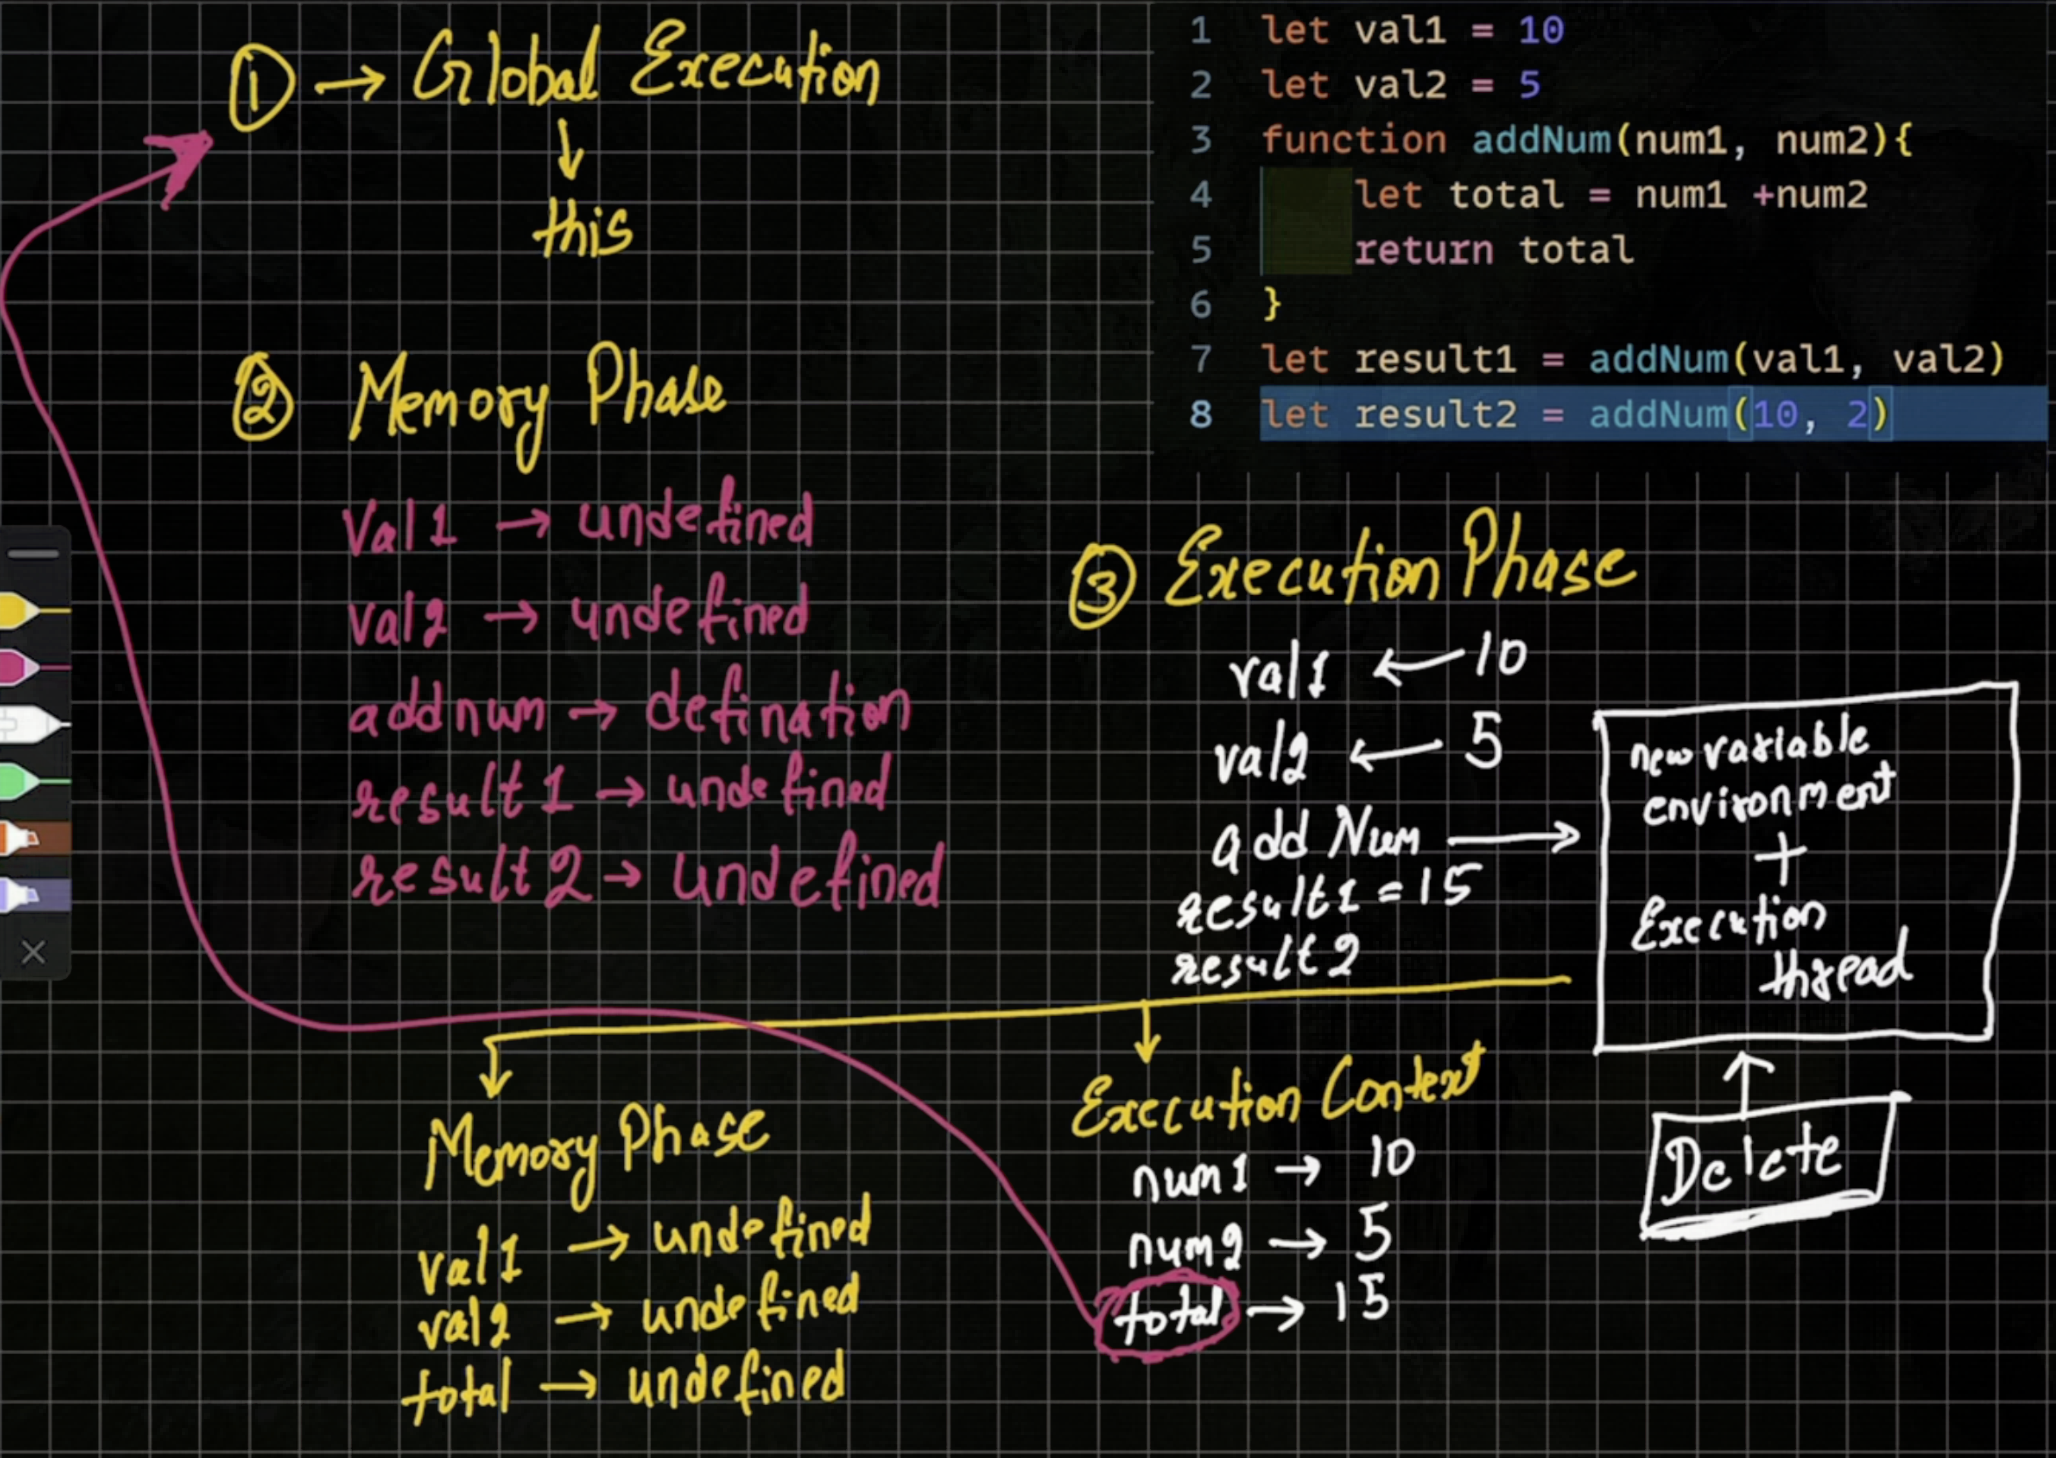 ① → Global Execution
↓
this
② Memory Phase
Val1 → undefined
val2 → undefined
addnum → defination
result1 → undefined
result2 → undefined
1 let val1 = 10
2 let val2 = 5
3 function addNum(num1, num2){
4 let total = num1 +num2
5 return total
6 }
7 let result1 = addNum(val1, val2)
8 let result2 = addNum(10, 2)
③ Execution Phase
val1 ← 10
val2 ← 5
add Num →
result1 = 15
result2
new variable
environment
+
Execution
thread
Delete
Memory Phase
val1 → undefined
val2 → undefined
total → undefined
Execution Context
num1 → 10
num2 → 5
total → 15